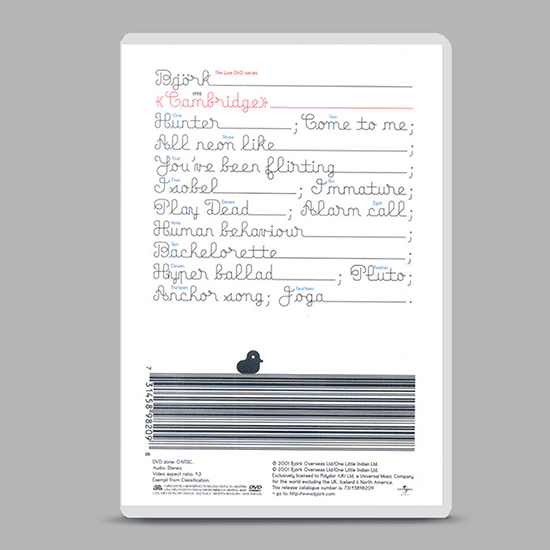 Björk The Live DVD series
1998
«Cambridge»
One Two
Hunter ; Come to me;
Three
All neon like ;
Four
You've been flirting ;
Five Six
Isobel ; Immature;
Seven Eight
Play Dead ; Alarm call;
Nine
Human behaviour ;
Ten
Bachelorette ;
Eleven Twelve
Hyper ballad ; Pluto;
Thirteen Fourteen
Anchor song; Joga .
7 31458 98209
DVD zone: 0 NTSC.
Audio: Stereo.
Video aspect ratio: 4:3
Exempt from Classification.
DVD
© 2001 Björk Overseas Ltd/One Little Indian Ltd.
℗ 2001 Björk Overseas Ltd/One Little Indian Ltd.
Exclusively licensed to Polydor (UK) Ltd, a Universal Music Company
for the world excluding the UK, Iceland & North America.
This release catalogue number is 73145898209
→ go to: http://www.bjork.com
UNIVERSAL